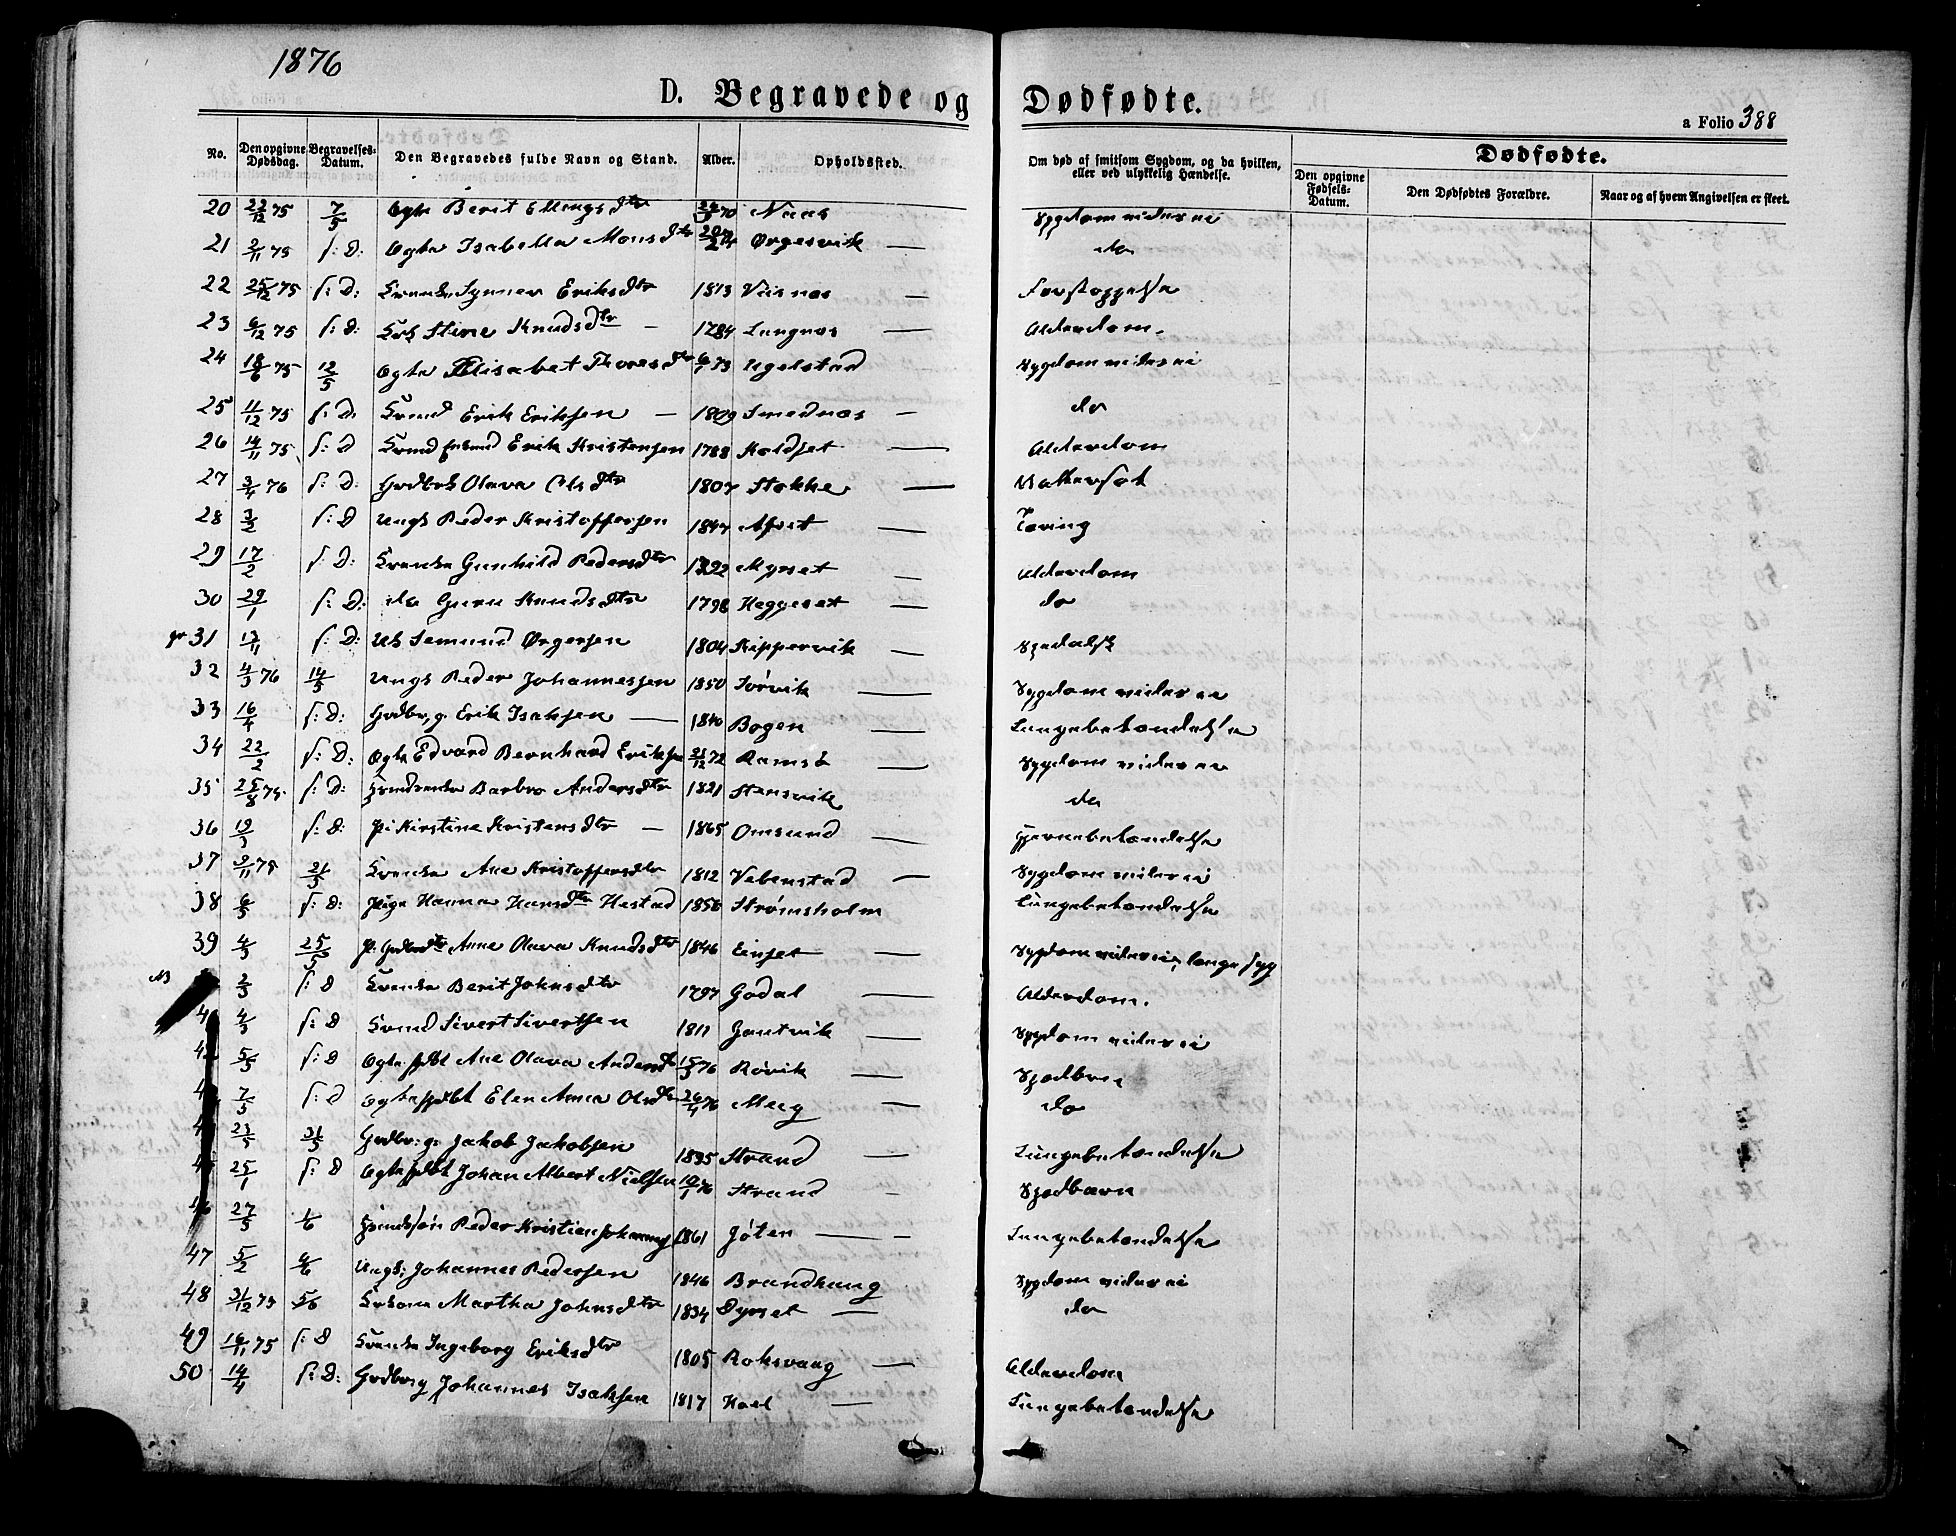 1876
D. Begravede og Dødfødte.
a Folio 388
No. Den opgivne Dødsdag. Begravelses-Datum. Den Begravedes fulde Navn og Stand. Alder. Opholdssted. Om død af smitsom Sygdom, og da hvilken, eller ved ulykkelig Hændelse. Dødfødte. Den opgivne Fødsels-Datum. Den Dødfødtes Forældre. Naar og af hvem Angivelsen er skeet.
20 22/12 75 7/5 Ægte Berit Ellings Dtr 70 Naas Sygdom vides ei
21 2/11 75 s: D: Ægte Isabella Mons Dtr Ørgesvik — do
22 25/12 75 s: D: Synnev Eriks Dtr 1813 Veisnæs — Forstoppelse
23 6/12 75 s: D: Stine Knuds Dtr — 1784 Langnæs — Alderdom.
24 18/6 75 12/5 Ægte Elisabet Thores Dtr 6/1 73 Ugelstad Sygdom vides ei
25 11/12 75 s: D: Erik Eriksen — 1809 Smednæs — do
26 14/11 75 s: D Erik Kristensen 1788 Koldset — Alderdom
27 3/4 76 s: D: Olava Ols Dtr 1807 Stokke — Vattersot
28 3/2 s: D Ungk Peder Kristoffersen 1847 — Tæring
29 17/2 s: D: Gunhild Peders Dtr 1792 Myrset — Alderdom
30 29/1 s: D: do Guru Knuds Dtr 1798 Heggeset — do
31 13/11 s: D: Semund Ørgersen 1804 Kippervik — Spedalsk
32 4/3 76 14/5 Ungk Peder Johannessen 1850 Sørvik — Sygdom vides ei
33 16/4 s: D: Grdbr, g. Erik Isaksen — 1840 Bogen — Lungebetændelse
34 22/2 s: D: Ægte Edvard Bernhard Eriksen 21/12 72 Ramsø — Sygdom vides ei
35 25/8 75 s: D: Barbro Anders Dtr 1821 Stensvik do
36 19/3 s: D: Pi Kirstine Kristens Dtr — 1865 Omsund — Hjernebetændelse
37 3/11 75 21/5 Ane Kristoffers Dtr 1812 Vebenstad — Sygdom vides ei
38 6/5 s: D: Pige Hanna Hans Dtr Hestad 1856 Strømsholm Lungebetændelse
39 4/3 25/5 Anne Olava Knuds Dtr 1846 Einset — Sygdom vides ei, længe syg
2/3 s: D Berit Johns Dtr 1797 Godal — Alderdom.
4 4/3 s: D Sivert Sivertsen 1811 Gautvik — Sygdom vides ei
4 5/5 s: D Ægte spbt Ane Olava Anders Dtr 15/3 76 Røvik — Spedbrn
4 7/5 s: D Ægte spbt Elen Anna Ols Dtr 26/4 76 Meeg — do
4 23/5 31/5 Grdbr: g: Jakob Jakobsen 1835 Strand — Lungebetændelse
45 25/1 s: D Ægte spbt Johan Albert Nielsen 10/1 76 Strand — Spedbarn
46 27/5 1/6 Peder Kristian Johannes 1861 Jøten — Lungebetændelse
47 5/2 4/6 Ungk: Johannes Pedersen 1846 Brandhaug Sygdom vides ei
48 31/12 75 5/6 Martha Johns Dtr 1834 Dyrset — do
49 16/11 75 s: D Ingeborg Eriks Dtr 1805 Roksvaag — Alderdom
50 14/4 s: D: Grdbrg Johannes Isaksen 1817 Hoel — Lungebetændelse